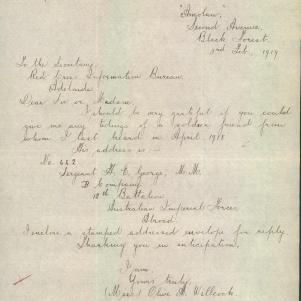 "Angolan",
Second Avenue,
Black Forest.
2nd Feb., 1919
To the Secretary,
Red Cross Information Bureau,
Adelaide.
Dear Sir or Madam,
I should be very grateful if you could
give me any tidings of a soldier friend from
whom I last heard in April 1918.
His address is :-
No. 662
Sergeant H. C. George, M.M.
B Company
10th Battalion
Australian Imperial Forces
Abroad.
I enclose a stamped addressed envelope for reply
Thanking you in anticipation,
I am
Yours truly,
(Miss) Olive M. Willcock.